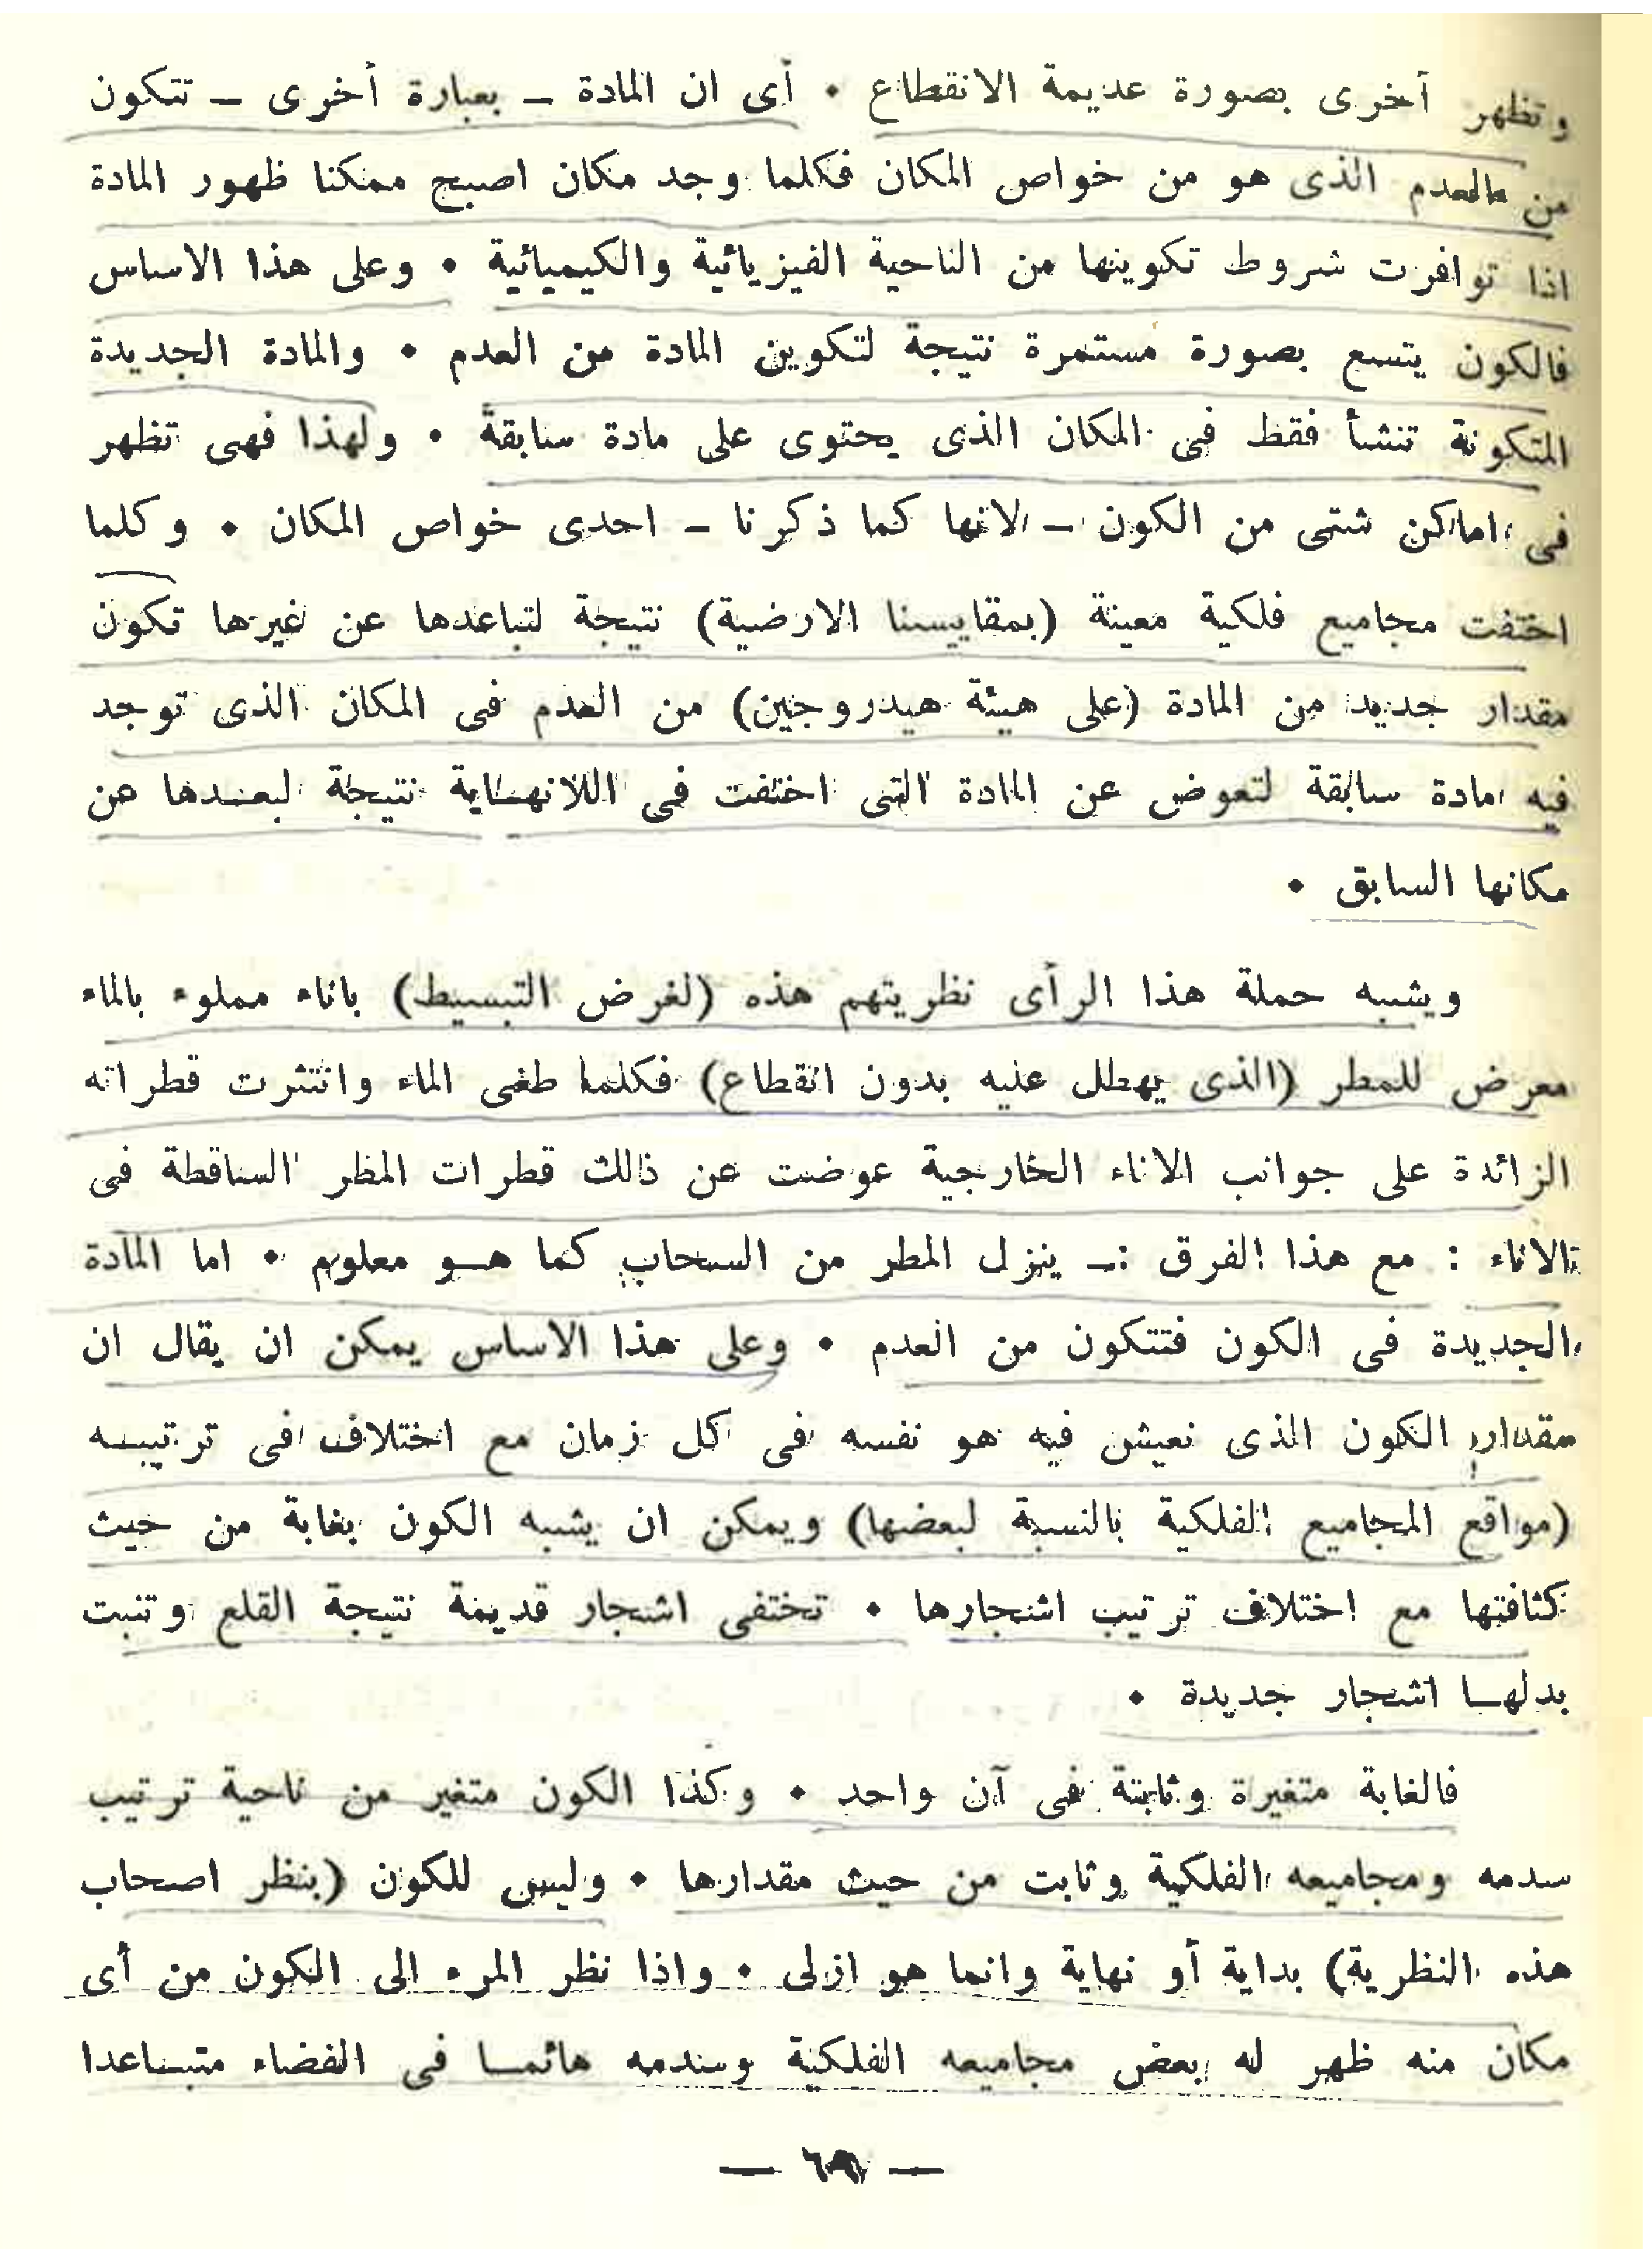 وتظهر أخرى بصورة عديمة الانقطاع • أى ان المادة ـ بعبارة أخرى ـ تتكون
من العدم الذى هو من خواص المكان فكلما وجد مكان اصبح ممكنا ظهور المادة
اذا توافرت شروط تكوينها من الناحية الفيزيائية والكيميائية • وعلى هذا الاساس
فالكون يتسع بصورة مستمرة نتيجة لتكوين المادة من العدم • والمادة الجديدة
المتكونة تنشأ فقط فى المكان الذى يحتوى على مادة سابقة • ولهذا فهى تظهر
فى اماكن شتى من الكون ـ لانها كما ذكرنا ـ احدى خواص المكان • وكلما
اختفت مجاميع فلكية معينة (بمقاييسنا الارضية) نتيجة لتباعدها عن غيرها تكون
مقدار جديد من المادة (على هيئة هيدروجين) من العدم فى المكان الذى توجد
فيه مادة سابقة لتعوض عن المادة التى اختفت فى اللانهــاية نتيجة لبعــدها عن
مكانها السابق •
ويشبه حملة هذا الرأى نظريتهم هذه (لغرض التبسيط) باناء مملوء بالماء
معرض للمطر (الذى يهطل عليه بدون انقطاع) فكلما طغى الماء وانتثرت قطراته
الزائدة على جوانب الاناء الخارجية عوضت عن ذالك قطرات المطر الساقطة فى
الاناء : مع هذا الفرق :ـ ينزل المطر من السحاب كما هــو معلوم • اما المادة
الجديدة فى الكون فتتكون من العدم • وعلى هذا الاساس يمكن ان يقال ان
مقدار الكون الذى نعيش فيه هو نفسه فى كل زمان مع اختلاف فى ترتيبــه
(مواقع المجاميع الفلكية بالنسبة لبعضها) ويمكن ان يشبه الكون بغابة من حيث
كثافتها مع اختلاف ترتيب اشجارها • تختفى اشجار قديمة نتيجة القلع وتنبت
بدلهــا اشجار جديدة •
فالغابة متغيرة وثابتة فى آن واحد • وكذا الكون متغير من ناحية ترتيب
سدمه ومجاميعه الفلكية وثابت من حيث مقدارها • وليس للكون (بنظر اصحاب
هذه النظرية) بداية أو نهاية وانما هو ازلى • واذا نظر المرء الى الكون من أى
مكان منه ظهر له بعض مجاميعه الفلكية وسدمه هائمــا فى الفضاء متبــاعدا